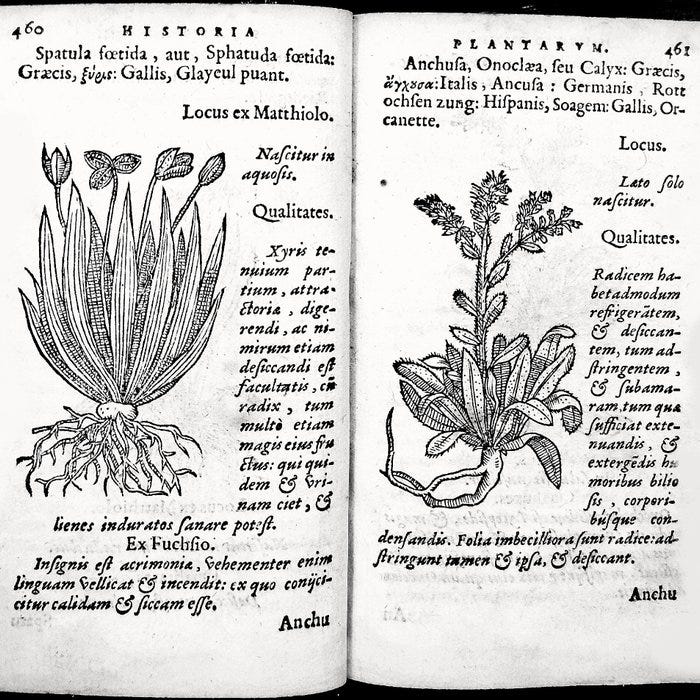 460 HISTORIA
Spatula fœtida, aut, Sphatuda fœtida:
Græcis, ξύρις: Gallis, Glayeul puant.
Locus ex Matthiolo.
Naſcitur in
aquoſis.
Qualitates.
Xyris te-
nuium par-
tium, attra-
ctoriæ, dige-
rendi, ac ni-
mirum etiam
deſiccandi eſt
facultatis, cũ
radix, tum
multò etiam
magis eius fru
ctus: qui qui-
dem & vri-
nam ciet, &
lienes induratos ſanare poteſt.
Ex Fuchſio.
Inſignis eſt acrimoniæ, vehementer enim
linguam vellicat & incendit: ex quo conijci-
citur calidam & ſiccam eſſe.
Anchu
PLANTARVM. 461
Anchuſa, Onoclæa, ſeu Calyx: Græcis,
ἄγχουσα: Italis, Ancuſa: Germanis, Rott
ochſen zung: Hiſpanis, Soagem: Gallis, Or-
canette.
Locus.
Læto ſolo
naſcitur.
Qualitates.
Radicem ha-
bet admodum
refrigerãtem,
& deſiccan-
tem, tum ad-
ſtringentem,
& ſubama-
ram, tum quæ
ſufficiat exte-
nuandis, &
extergẽdis hu
moribus bilio
ſis, corpori-
búſque con-
denſandis. Folia imbecilliora ſunt radice: ad-
ſtringunt tamen & ipſa, & deſiccant.
Anchu